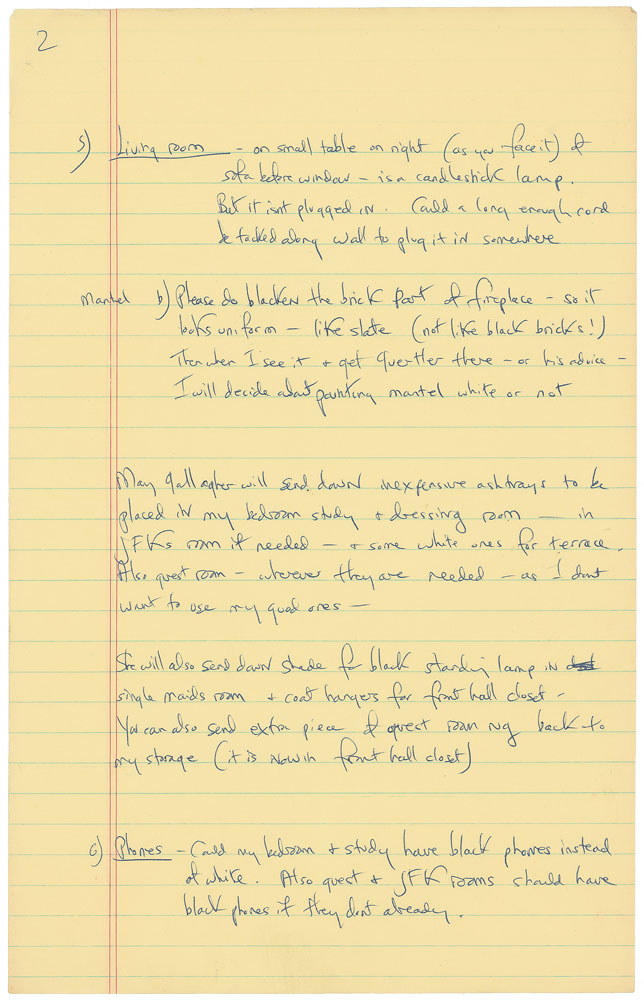 2
5) Living room - on small table on right (as you face it) of
sofa before window - is a candlestick lamp.
But it isnt plugged in. Could a long enough cord
be tacked along wall to plug it in somewhere
Mantel b) Please do blacken the brick part of fireplace - so it
looks uniform - like slate (not like black bricks!)
Then when I see it + get there - or his advice -
I will decide about painting mantel white or not
May Gallagher will send down inexpensive ashtrays to be
placed in my bedroom study + dressing room - in
JFKs room if needed - + some white ones for terrace.
Also guest room - wherever they are needed - as I dont
want to use my good ones -
She will also send down shade for black standing lamp in
single maids room + coat hangers for front hall closet -
You can also send extra piece of guest room rug back to
my storage (it is now in front hall closet)
6) Phones - Could my bedroom + study have black phones instead
of white. Also guest + JFK rooms should have
black phones if they dont already.